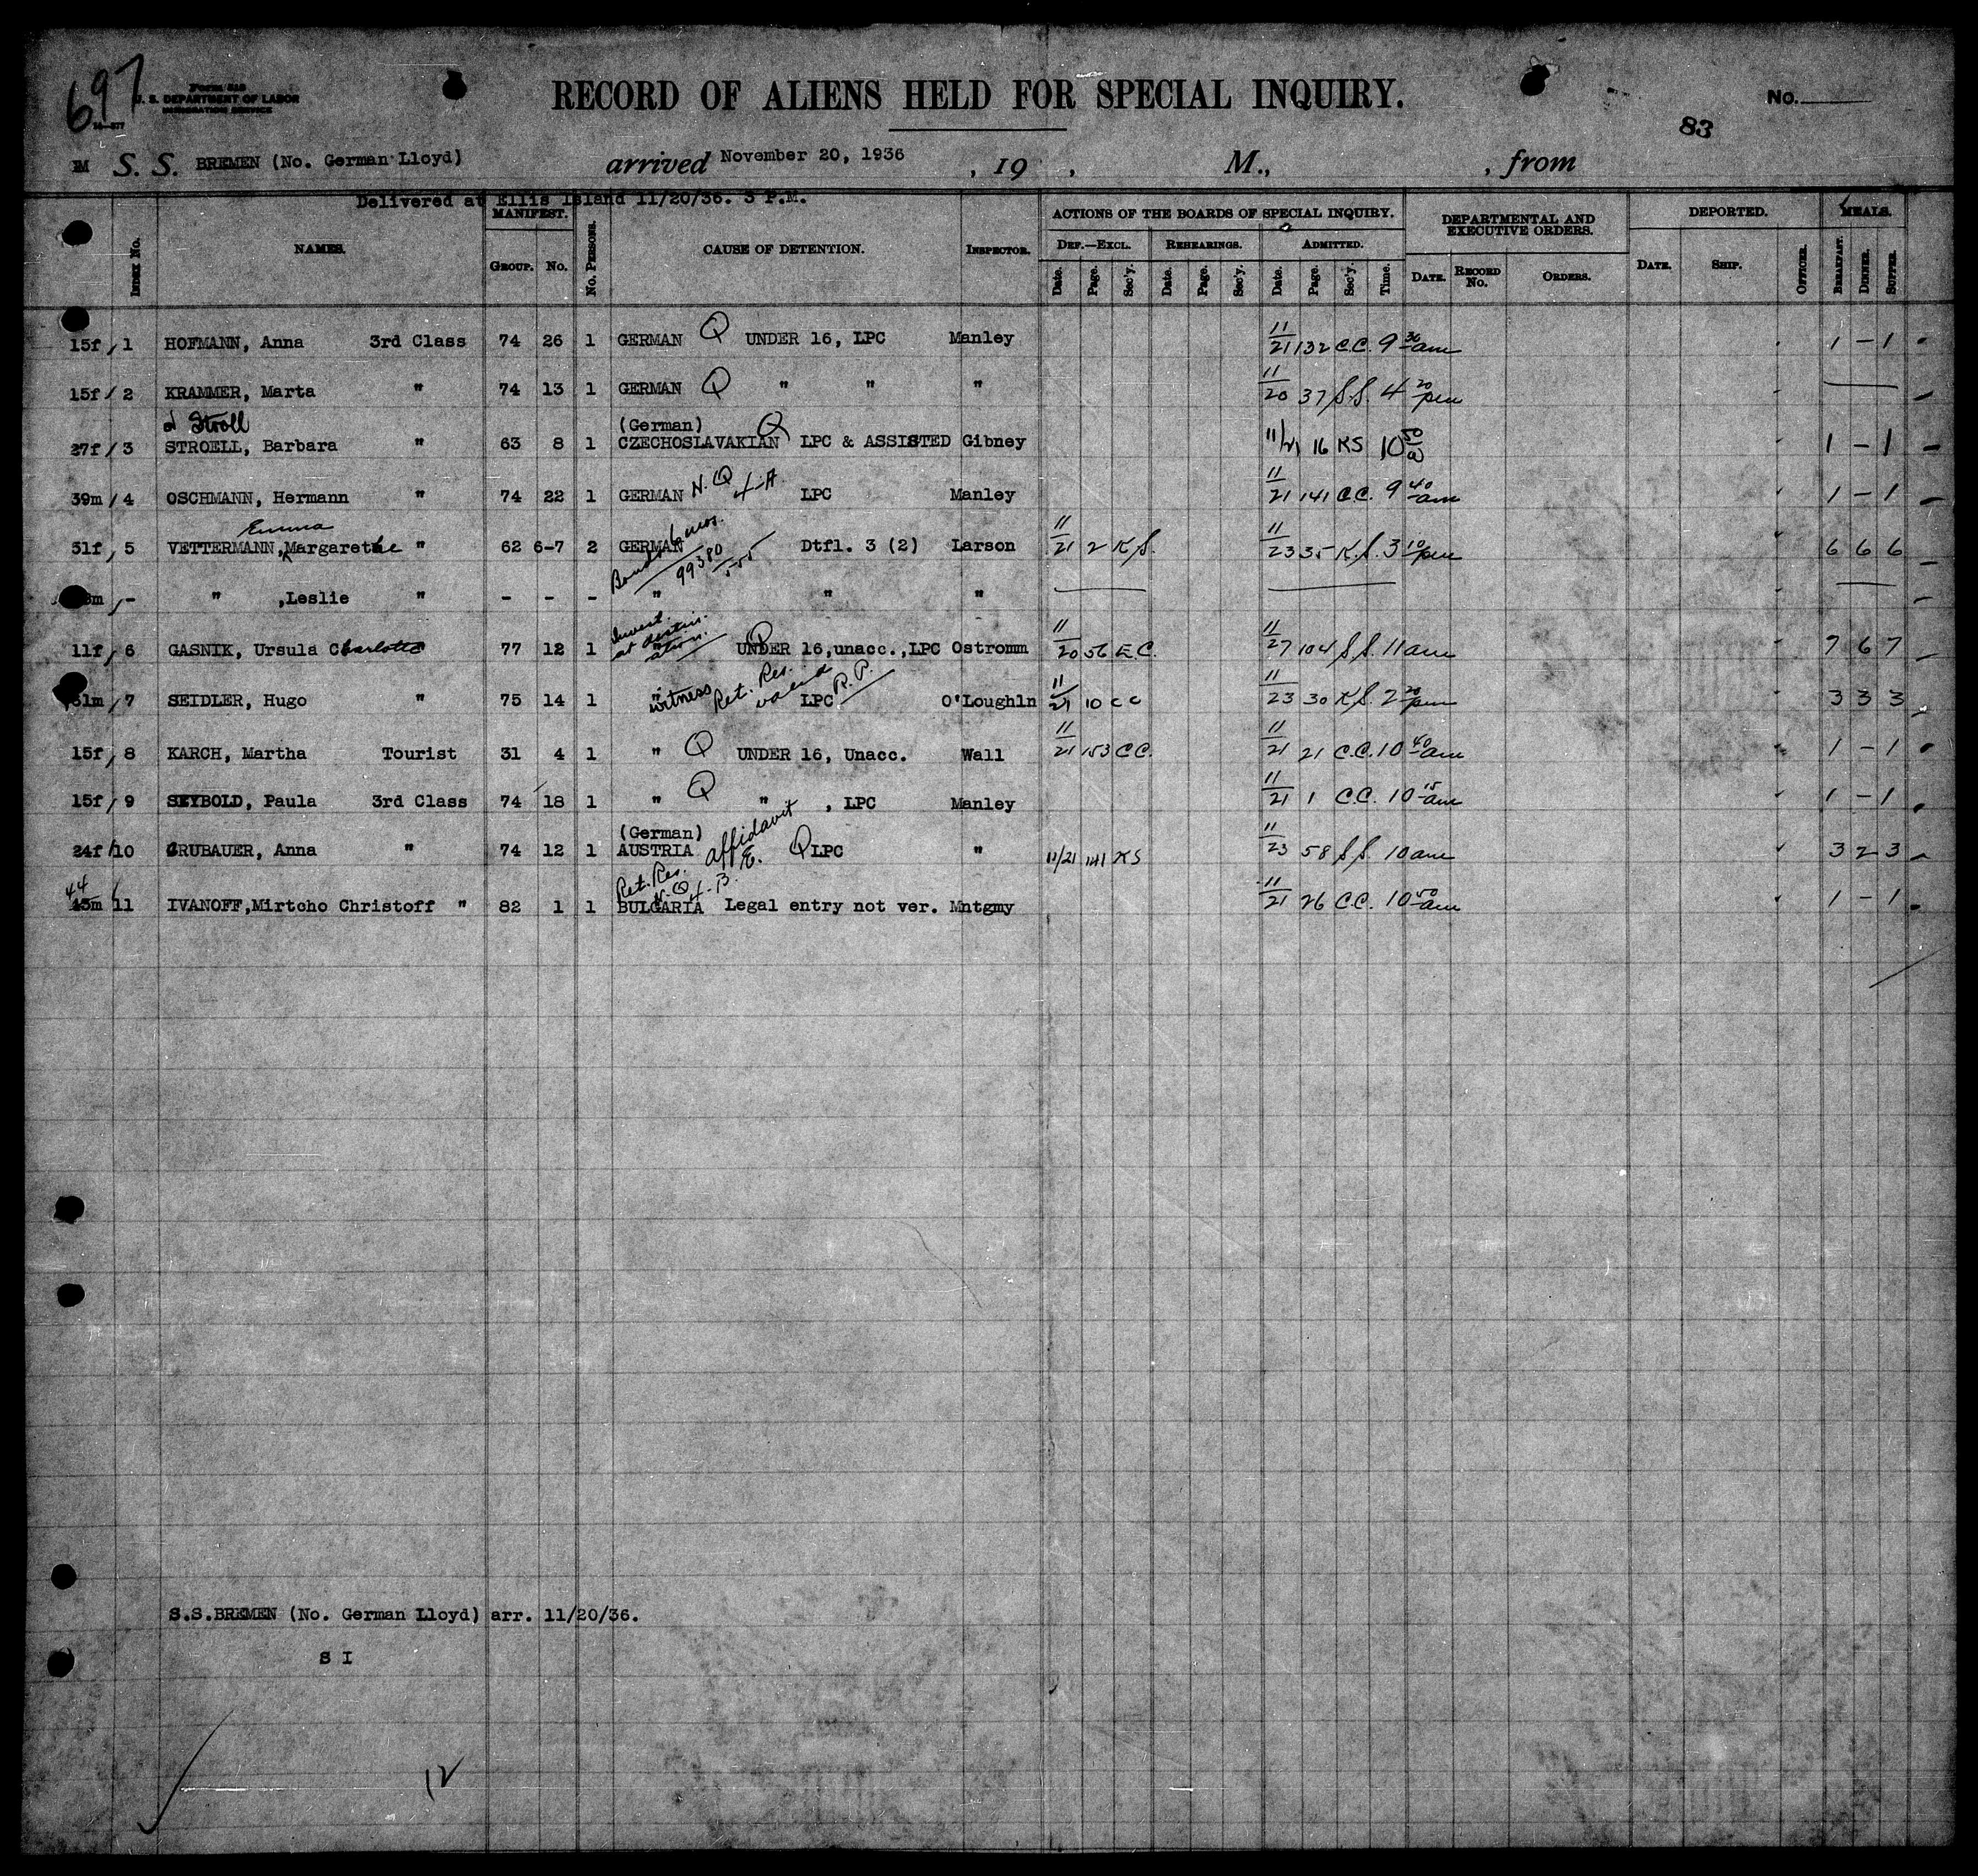 697
Form 518
U. S. DEPARTMENT OF LABOR
IMMIGRATION SERVICE
RECORD OF ALIENS HELD FOR SPECIAL INQUIRY.
No.
83
S. S. BREMEN (No. German Lloyd) arrived November 20, 1936, 19 , M., , from
Delivered at Ellis Island 11/20/36. 3 P.M.
MANIFEST. ACTIONS OF THE BOARDS OF SPECIAL INQUIRY. DEPARTMENTAL AND EXECUTIVE ORDERS. DEPORTED. MEALS.
Index No. NAMES. Group. No. No. Persons. CAUSE OF DETENTION. Inspector. Def.—Excl. Rehearings. Admitted.
Date. Page. Sec'y. Date. Page. Sec'y. Date. Page. Sec'y. Time. Date. Record No. Orders. Date. Ship. Officer. Breakfast. Dinner. Supper.
15f / 1 HOFMANN, Anna 3rd Class 74 26 1 GERMAN Q UNDER 16, LPC Manley 11/21 132 C.C. 9 30 am 1 – 1
15f / 2 KRAMMER, Marta " 74 13 1 GERMAN Q " " " 11/20 37 S.S. 4 20 pm
Stroll
(German)
27f / 3 STROELL, Barbara " 63 8 1 CZECHOSLAVAKIAN Q LPC & ASSISTED Gibney 11/21 16 KS 10 50 a 1 – 1
39m / 4 OSCHMANN, Hermann " 74 22 1 GERMAN N.Q 4-A. LPC Manley 11/21 141 C.C. 9 40 am 1 – 1
Emma
31f / 5 VETTERMANN, Margarethe " 62 6-7 2 GERMAN Dtfl. 3 (2) Larson 11/21 2 K.S. 11/23 35 K.S. 3 10 pm 6 6 6
Bond 6 mos. 99380
m / - " ,Leslie " - - - " " "
Invest. at destination.
11f / 6 GASNIK, Ursula Charlotte " 77 12 1 " Q UNDER 16,unacc.,LPC Ostromm 11/20 56 E.C. 11/27 104 S.S. 11 am 7 6 7
51m / 7 SEIDLER, Hugo " 75 14 1 " witness Ret. Res. valid LPC R.P. O'Loughln 11/21 10 CC 11/23 30 K.S. 2 20 pm 3 3 3
15f / 8 KARCH, Martha Tourist 31 4 1 " Q UNDER 16, Unacc. Wall 11/21 153 C.C. 11/21 21 C.C. 10 40 am 1 – 1
15f / 9 SEYBOLD, Paula 3rd Class 74 18 1 " Q " , LPC Manley 11/21 1 C.C. 10 15 am 1 – 1
(German) affidavit
24f / 10 GRUBAUER, Anna " 74 12 1 AUSTRIA E. Q LPC " 11/21 141 KS 11/23 58 S.S. 10 am 3 2 3
Ret. Res. N.Q 4-B.
44
43m / 11 IVANOFF, Mirtcho Christoff " 82 1 1 BULGARIA Legal entry not ver. Mntgmy 11/21 26 C.C. 10 50 am 1 – 1
S.S.BREMEN (No. German Lloyd) arr. 11/20/36.
S I
12